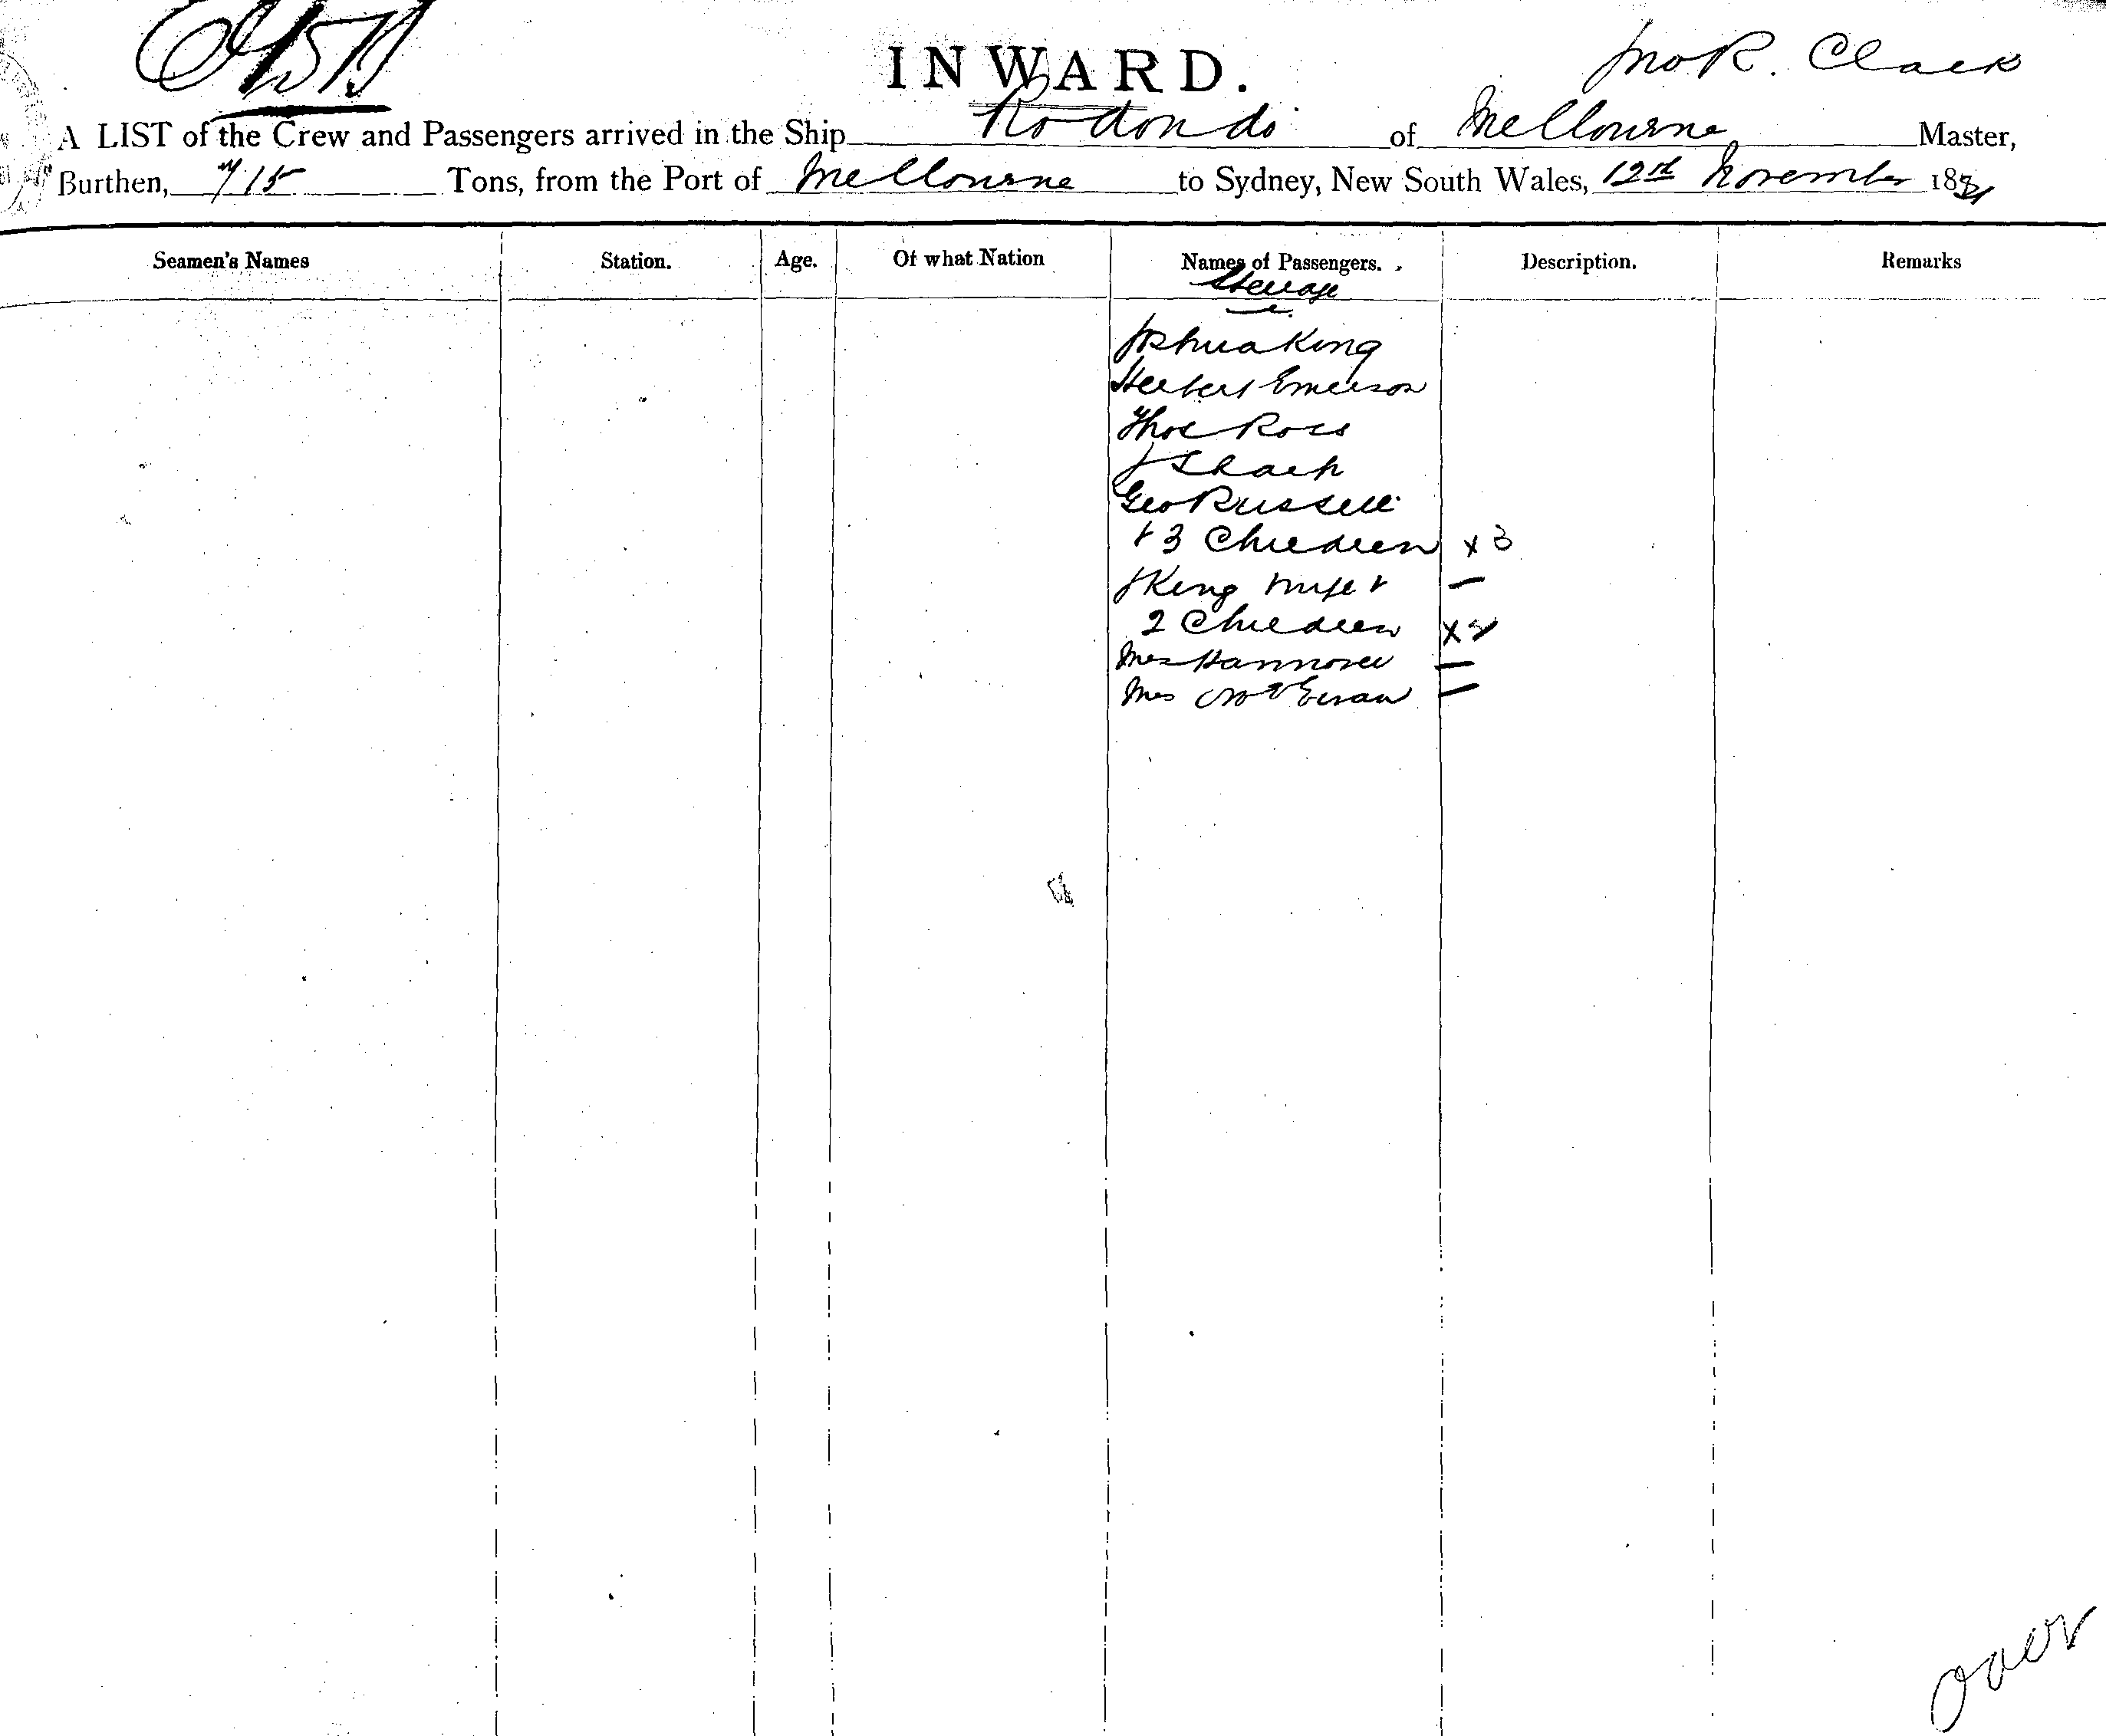 INWARD.
Jno R. Clark
A LIST of the Crew and Passengers arrived in the Ship Rodondo of Melbourne Master,
Burthen, 715 Tons, from the Port of Melbourne to Sydney, New South Wales, 12th November 188
Seamen's Names Station. Age. Of what Nation Names of Passengers. Description. Remarks
Steerage
Joshua King
Herbert Emerson
Thos Ross
J Sharp
Geo Russell
+ 3 Children x 3
J King wife + —
2 Children x 2
Mrs Hannover —
Mrs —
over